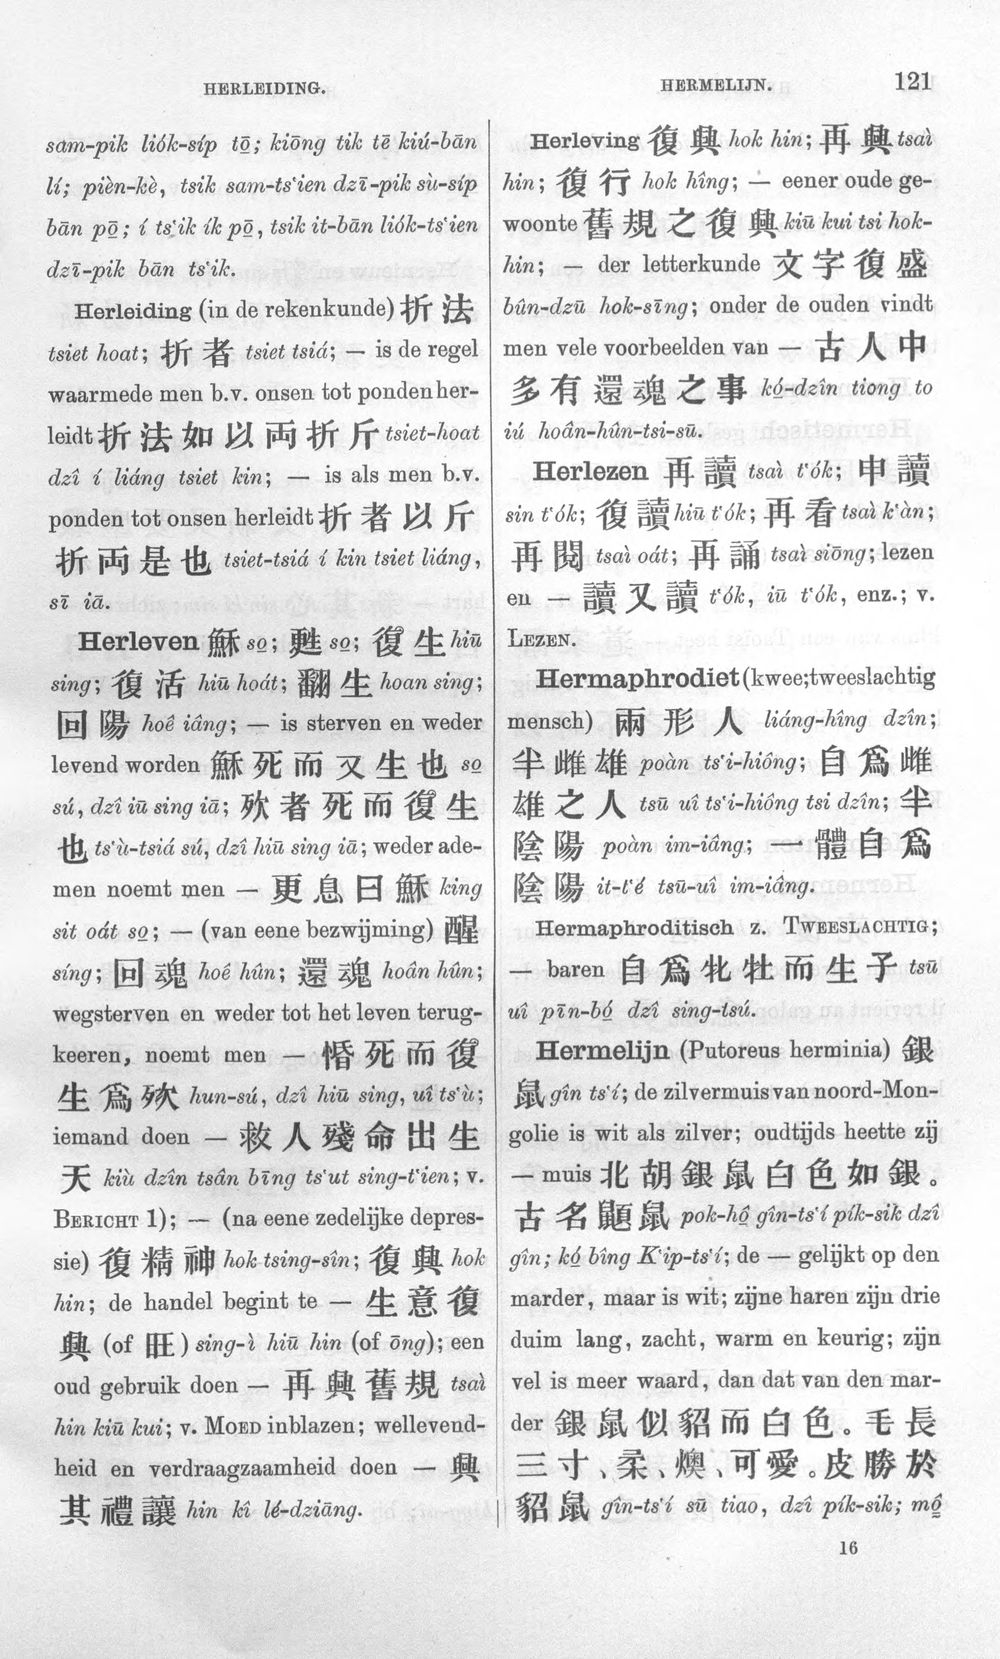 HERLEIDING.
HERMELIJN.
121
sam-pik liók-síp tō̤; kiōng tik tē kiú-bān
lí; pièn-kè, tsik sam-tsʻien dzī-pik sù-síp
bān pō̤; í tsʻik ík pō̤, tsik it-bān liók-tsʻien
dzī-pik bān tsʻik.
Herleiding (in de rekenkunde) 折法
tsiet hoat; 折者 tsiet tsiá; — is de regel
waarmede men b.v. onsen tot ponden her-
leidt 折法如以両折斤 tsiet-hoat
dzî í liáng tsiet kin; — is als men b.v.
ponden tot onsen herleidt 折者以斤
折両是也 tsiet-tsiá í kin tsiet liáng,
sī iā.
Herleven 穌 so̤; 甦 so̤; 復生 hiū
sing; 復活 hiū hoát; 翻生 hoan sing;
回陽 hoê iâng; — is sterven en weder
levend worden 穌死而又生也 so̤
sú, dzî iū sing iā; 㱔者死而復生
也 tsʻù-tsiá sú, dzî hiū sing iā; weder ade-
men noemt men — 更息曰穌 king
sit oát so̤; — (van eene bezwijming) 醒
síng; 回魂 hoê hûn; 還魂 hoân hûn;
wegsterven en weder tot het leven terug-
keeren, noemt men — 惛死而復
生爲㱔 hun-sú, dzî hiū sing, uî tsʻù;
iemand doen — 救人殘命出生
天 kiù dzîn tsân bīng tsʻut sing-tʻien; v.
BERICHT 1); — (na eene zedelijke depres-
sie) 復精神 hok tsing-sîn; 復興 hok
hin; de handel begint te — 生意復
興 (of 旺) sing-ì hiū hin (of ōng); een
oud gebruik doen — 再興舊規 tsaì
hin kiū kui; v. MOED inblazen; wellevend-
heid en verdraagzaamheid doen — 興
其禮讓 hin kî lé-dziāng.
Herleving 復興 hok hin; 再興 tsaì
hin; 復行 hok hîng; — eener oude ge-
woonte 舊規之復興 kiū kui tsi hok-
hin; — der letterkunde 文字復盛
bûn-dzū hok-sīng; onder de ouden vindt
men vele voorbeelden van — 古人中
多有還魂之事 kó̤-dzîn tiong to
iú hoân-hûn-tsi-sū.
Herlezen 再讀 tsaì tʻók; 申讀
sin tʻók; 復讀 hiū tʻók; 再看 tsaì kʻàn;
再閱 tsaì oát; 再誦 tsaì siōng; lezen
en — 讀又讀 tʻók, iū tʻók, enz.; v.
LEZEN.
Hermaphrodiet (kwee; tweeslachtig
mensch) 兩形人 liáng-hîng dzîn;
半雌雄 poàn tsʻi-hiông; 自爲雌
雄之人 tsū uî tsʻi-hiông tsi dzîn; 半
陰陽 poàn im-iâng; 一體自爲
陰陽 it-tʻé tsū-uî im-iâng.
Hermaphroditisch z. TWEESLACHTIG;
— baren 自爲牝牡而生子 tsū
uî pīn-bó̤ dzî sing-tsú.
Hermelijn (Putoreus herminia) 銀
鼠 gîn tsʻí; de zilvermuis van noord-Mon-
golie is wit als zilver; oudtijds heette zij
— muis 北胡銀鼠白色如銀。
古名鼮鼠 pok-hô̤ gîn-tsʻí pík-sik dzî
gîn; kó̤ bîng Kʻip-tsʻí; de — gelijkt op den
marder, maar is wit; zijne haren zijn drie
duim lang, zacht, warm en keurig; zijn
vel is meer waard, dan dat van den mar-
der 銀鼠似貂而白色。毛長
三寸、柔、燠、可愛。皮勝於
貂鼠 gîn-tsʻí sū tiao, dzî pík-sik; mô̤
16